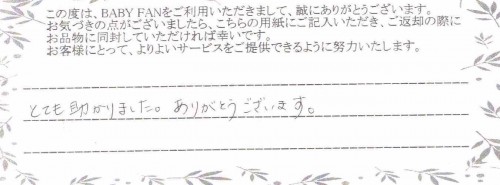 この度は、BABY FANをご利用いただきまして、誠にありがとうございます。
お気づきの点がございましたら、こちらの用紙にご記入いただき、ご返却の際に
お品物に同封していただければ幸いです。
お客様にとって、よりよいサービスをご提供できるように努力いたします。
とても助かりました。ありがとうございます。